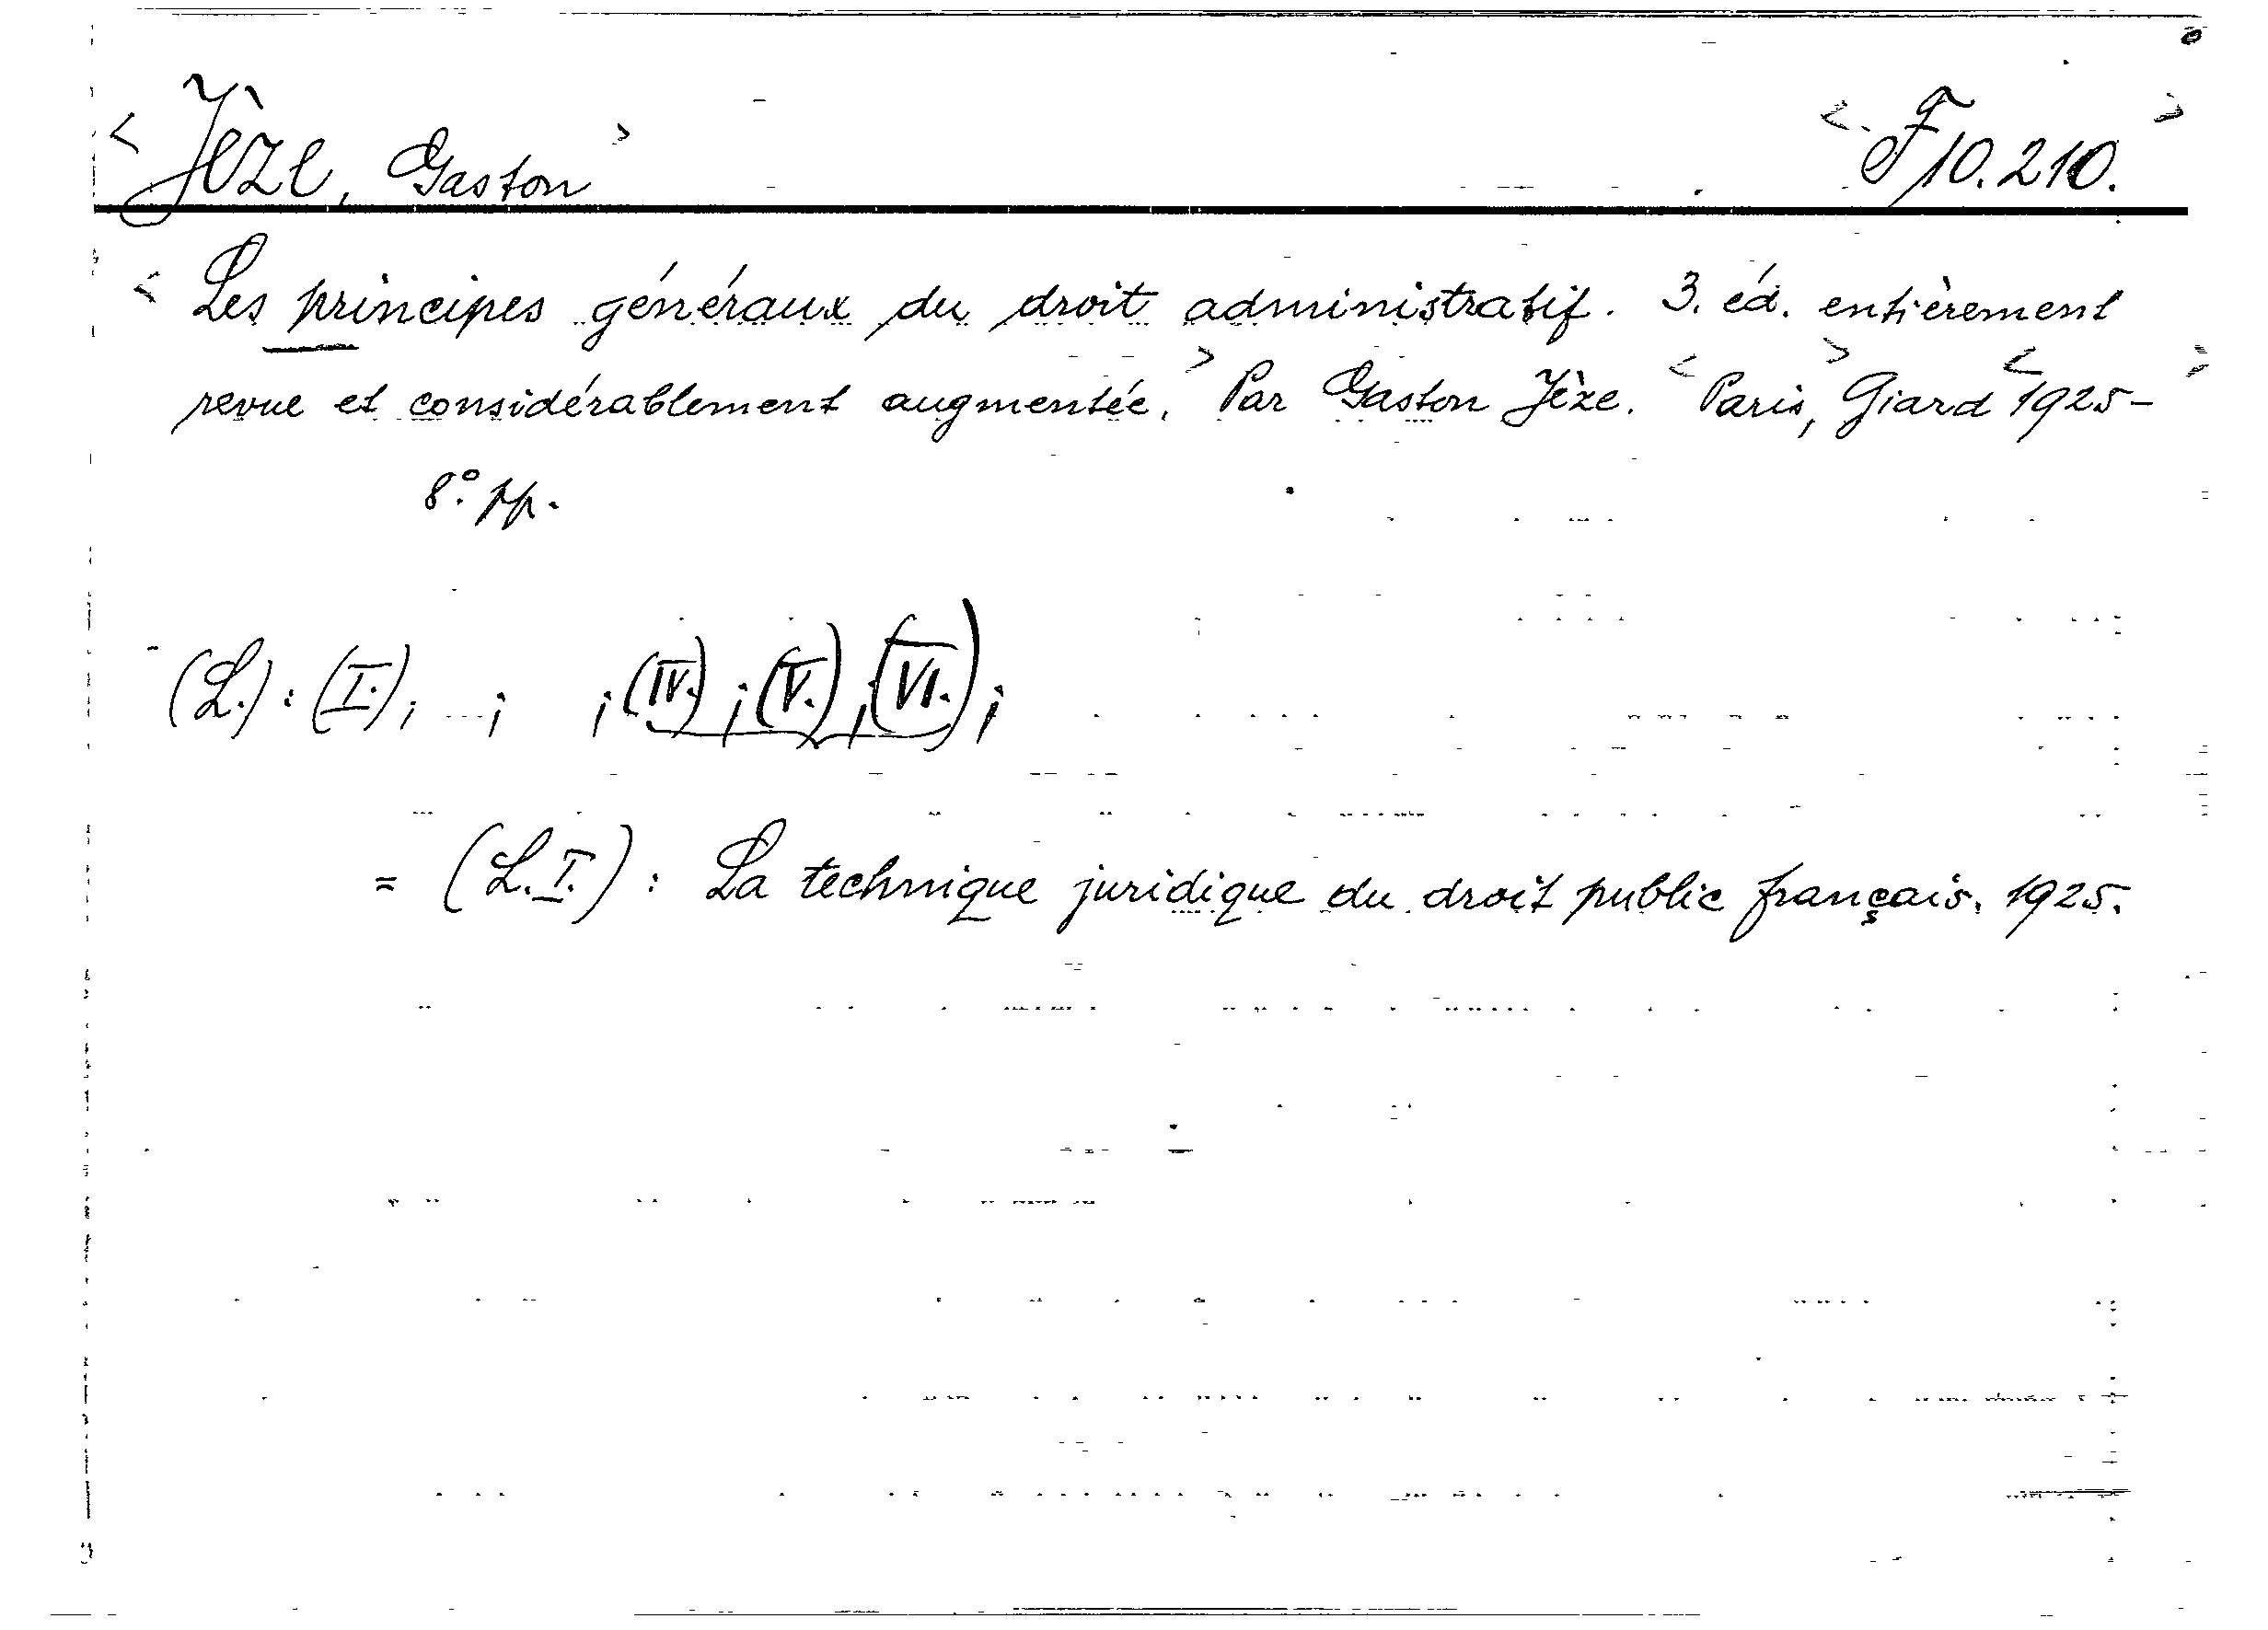 < Jèze, Gaston > < F 10.210. >
< Les principes généraux du droit administratif. 3. éd. entièrement
revue et considérablement augmentée. > Par Gaston Jèze. < Paris, > Giard < 1925- >
8° pp.
(L.) : (I.) ; ; ; (IV.) ; (V.) ; (VI.) ;
= (L.I.) : La technique juridique du droit public français. 1925.